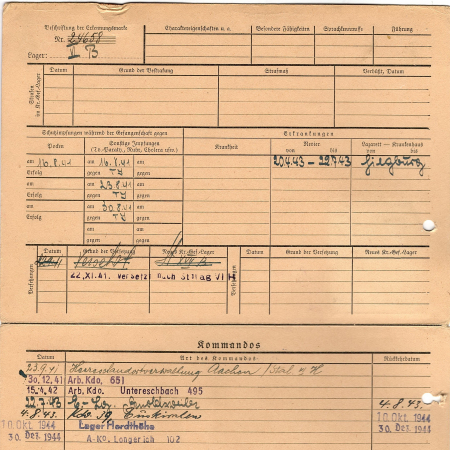 Beschriftung der Erkennungsmarke
Charaktereigenschaften u. a.
Besondere Fähigkeiten
Sprachkenntnisse
Führung
Nr. 24658
Lager: V B
Strafen im Kr.-Gef.-Lager
Datum
Grund der Bestrafung
Strafmaß
Verbüßt, Datum
Schutzimpfungen während der Gefangenschaft gegen
Erkrankungen
Pocken
Sonstige Impfungen
(Ty.-Paraty., Ruhr, Cholera usw.)
Krankheit
Revier
von bis
Lazarett – Krankenhaus
von bis
am 16.8.41
am 16.8.41
am
20.4.43 – 22.7.43
Siegburg
Erfolg
gegen TY
gegen
am
am 23.8.41
am
Erfolg
gegen TY
gegen
am
am 30.8.41
am
Erfolg
gegen TY
gegen
am
am
gegen
gegen
Versetzungen
Datum
Grund der Versetzung
Neues Kr.-Gef.-Lager
Datum
Grund der Versetzung
Neues Kr.-Gef.-Lager
22.XI.41. Versetzt nach Stalag VI H
Kommandos
Datum
Art des Kommandos
Rückkehrdatum
23.9.41 Aachen Stal VI H
30.12.41 Arb. Kdo. 651
15.4.42 Arb. Kdo. Untereschbach 495
22.7.43
4.8.43.
4.8.43. Kdo. 39 Euskirchen
10. Okt. 1944
10. Okt. 1944 Lager Hardthöhe
30. Dez. 1944
30. Dez. 1944 A-Ko. Longerich 102